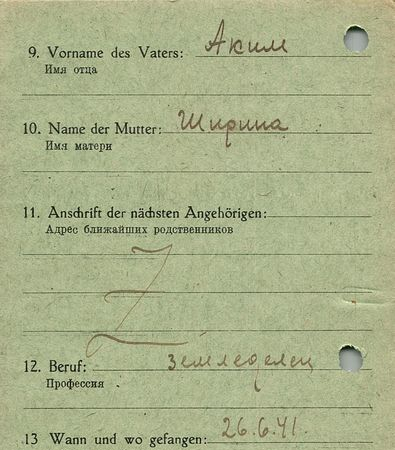 9. Vorname des Vaters: Аким
Имя отца
10. Name der Mutter: Ширина
Имя матери
11. Anschrift der nächsten Angehörigen:
Адрес ближайших родственников
Z
12. Beruf: земледелец
Профессия
13 Wann und wo gefangen: 26.6.41.